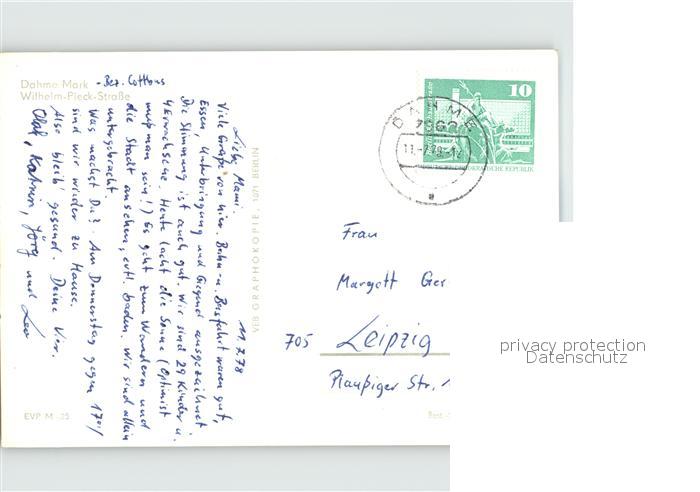 Dahme Mark - Bez. Cottbus
Wilhelm-Pieck-Straße
11.7.78
Liebe Mami.
Viele Grüße von hier. Bahn- u. Busfahrt waren gut,
Essen, Unterbringung und Gegend ausgezeichnet.
Die Stimmung ist auch gut. Wir sind 29 Kinder u.
4 Erwachsene. Heute lacht die Sonne (Optimist
muß man sein!) Es geht zum Wandern und
die Stadt ansehen, evtl. baden. Wir sind allein
untergebracht.
Was machst Du? Am Donnerstag gegen 17 Uhr
sind wir wieder zu Hause.
Also bleib gesund. Deine Vier.
Olaf, Katrin, Jörg und
VEB GRAPHOKOPIE, 1071 BERLIN
EVP M -,25
Best.-
10
DEMOKRATISCHE REPUBLIK
DAHME
7960
11.-7.78
Frau
Margott Ger
705 Leipzig
Plaußiger Str. 1
privacy protection
Datenschutz